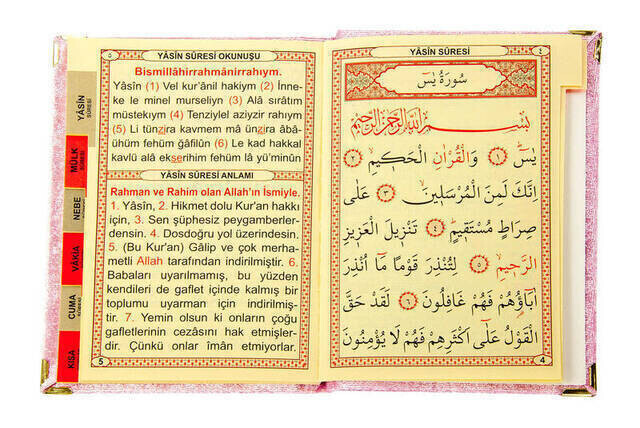 ٥
YÂSİN SÛRESİ OKUNUŞU
Bismillâhirrahmânirrahıym.
Yâsîn (1) Vel kur'ânil hakiym (2) İnne-
ke le minel murseliyn (3) Alâ sırâtım
müstekıym (4) Tenziylel aziyzir rahıym
(5) Li tünzira kavmem mâ ünzira âbâ-
ühüm fehüm ğâfilûn (6) Le kad hakkal
kavlü alâ ekserihim fehüm lâ yü'minûn
YÂSİN SÛRESİ ANLAMI
Rahman ve Rahim olan Allah'ın İsmiyle.
1. Yâsîn, 2. Hikmet dolu Kur'an hakkı
için, 3. Sen şüphesiz peygamberler-
densin. 4. Dosdoğru yol üzerindesin.
5. (Bu Kur'an) Gâlip ve çok merha-
metli Allah tarafından indirilmiştir. 6.
Babaları uyarılmamış, bu yüzden
kendileri de gaflet içinde kalmış bir
toplumu uyarman için indirilmiş-
tir. 7. Yemin olsun ki onların çoğu
gafletlerinin cezasını hak etmişler-
dir. Çünkü onlar îman etmiyorlar.
5
YÂSİN
SÛRESİ
MÜLK
SÛRESİ
NEBE
VÂKIA
CUMA
KISA
YÂSİN SÛRESİ
٤
سُورَةُ يٰسٓ
بِسْمِ اللّٰهِ الرَّحْمٰنِ الرَّحِيمِ
يٰسٓ ﴿١﴾ وَالْقُرْاٰنِ الْحَكِيمِ ﴿٢﴾
اِنَّكَ لَمِنَ الْمُرْسَلِينَ ﴿٣﴾ عَلٰى
صِرَاطٍ مُسْتَقِيمٍ ﴿٤﴾ تَنْزِيلَ الْعَزِيزِ
الرَّحِيمِ ﴿٥﴾ لِتُنْذِرَ قَوْمًا مَٓا اُنْذِرَ
اٰبَٓاؤُ۬هُمْ فَهُمْ غَافِلُونَ ﴿٦﴾ لَقَدْ حَقَّ
الْقَوْلُ عَلٰٓى اَكْثَرِهِمْ فَهُمْ لَا يُؤْمِنُونَ
4